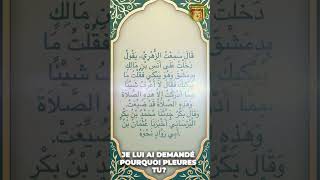 قَالَ سَمِعْتُ الزُّهْرِيَّ، يَقُولُ
دَخَلْتُ عَلَى أَنَسِ بْنِ مَالِكٍ
بِدِمَشْقَ وَهُوَ يَبْكِي فَقُلْتُ مَا
يُبْكِيكَ فَقَالَ لاَ أَعْرِفُ شَيْئًا
مِمَّا أَدْرَكْتُ إِلاَّ هَذِهِ الصَّلاَةَ
وَهَذِهِ الصَّلاَةُ قَدْ ضُيِّعَتْ
وَقَالَ بَكْرٌ حَدَّثَنَا مُحَمَّدُ بْنُ بَكْرٍ
الْبُرْسَانِيُّ أَخْبَرَنَا عُثْمَانُ بْنُ
أَبِي رَوَّادٍ نَحْوَهُ
JE LUI AI DEMANDÉ
POURQUOI PLEURES
TU?